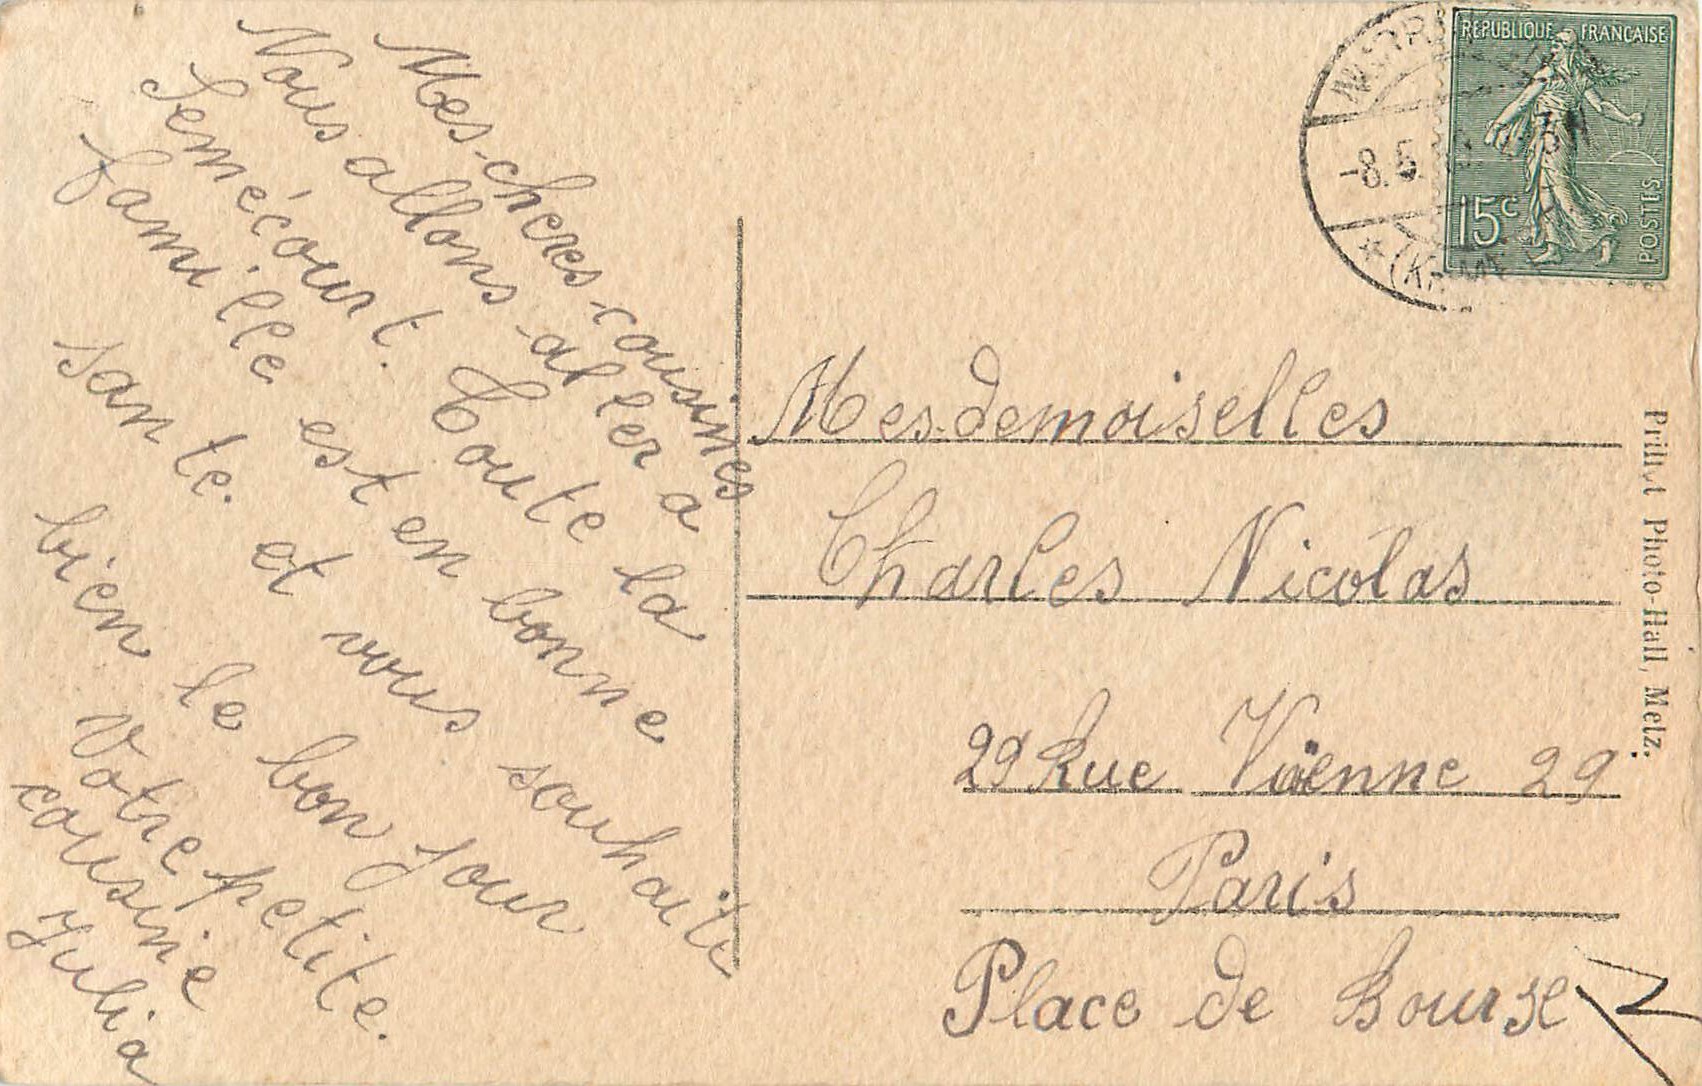 Mes cheres cousines
Nous allons aller a
Semécourt. Toute la
famille est en bonne
sante. et vous souhaite
bien le bon jour
Votre petite.
cousine
Julia
REPUBLIQUE FRANÇAISE
15c
POSTES
-8.5.
Mesdemoiselles
Charles Nicolas
29 Rue Vienne 29
Paris
Place de Bourse
Photo-Hall, Metz.